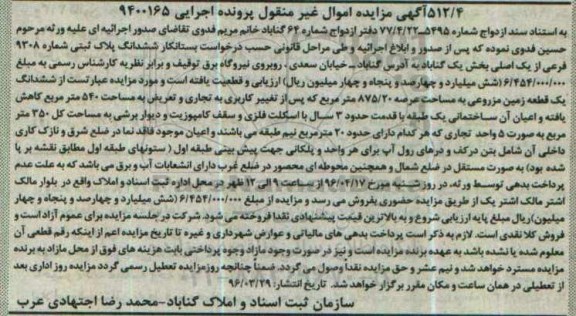 ۵۱۲/۴آگهی مزایده اموال غیر منقول پرونده اجرایی ۹۴۰۰۱۶۵
به استناد سند ازدواج شماره ۵۴۹۵ـ۷۷/۴/۲۲ دفتر ازدواج شماره ۶۲ گناباد خانم مریم فدوی تقاضای صدور اجرائیه ای علیه ورثه مرحوم
حسین فدوی نموده که پس از صدور و ابلاغ اجرائیه و طی مراحل قانونی حسب درخواست بستانکار ششدانگ پلاک ثبتی شماره ۹۳۰۸
فرعی از یک اصلی بخش یک گناباد به آدرس گناباد ـ خیابان سعدی ، روبروی نیروگاه برق توقیف و برابر نظریه کارشناس رسمی به مبلغ
۶/۴۵۴/۰۰۰/۰۰۰ (شش میلیارد و چهارصد و پنجاه و چهار میلیون ریال) ارزیابی و قطعیت یافته است و مورد مزایده عبارتست از ششدانگ
یک قطعه زمین مزروعی به مساحت عرصه ۸۷۵/۲۰ متر مربع که پس از تغییر کاربری به تجاری و تعریض به مساحت ۵۴۰ متر مربع کاهش
یافته و اعیان آن ساختمانی یک طبقه با قدمت حدود ۳ سال با اسکلت فلزی و سقف کامپوزیت و دیوار برشی به مساحت کل ۳۵۰ متر
مربع به صورت ۵ واحد تجاری که هر کدام دارای حدود ۲۰ مترمربع نیم طبقه می باشند و اعیان موجود فاقد نما در ضلع شرق و نازک کاری
داخلی آن شامل بتن در کف و درهای رول آپ برای هر واحد و پلکانی جهت پیش بینی طبقه اول ( ستونهای طبقه اول مطابق نقشه بر پا
شده بود) به صورت مستقل در ضلع شمال و همچنین محوطه ای محصور در ضلع غرب دارای انشعابات آب و برق می باشد که به علت عدم
پرداخت بدهی توسط ورثه، در روز شنبه مورخ ۹۶/۰۴/۱۷ از ساعت ۹ الی ۱۲ ظهر در محل اداره ثبت اسناد و املاک واقع در بلوار مالک
اشتر مالک اشتر یک از طریق مزایده حضوری بفروش می رسد و مزایده از مبلغ ۶/۴۵۴/۰۰۰/۰۰۰ (شش میلیارد و چهارصد و پنجاه و چهار
میلیون)ریال مبلغ پایه ارزیابی شروع و به بالاترین قیمت پیشنهادی نقدا فروخته می شود. شرکت در جلسه مزایده برای عموم آزاد است و
فروش کلا نقدی است. لازم به ذکر است پرداخت بدهی های مالیاتی و عوارض شهرداری و غیره تا تاریخ مزایده اعم از اینکه رقم قطعی آن
معلوم شده یا نشده باشد به عهده برنده مزایده است و نیز در صورت وجود مازاد وجوه پرداختی بابت هزینه های فوق از محل مازاد به برنده
مزایده مسترد خواهد شد و نیم عشر و حق مزایده نقداً وصول می گردد. ضمناً چنانچه روزمزایده تعطیل رسمی گردد مزایده روز اداری بعد
از تعطیلی در همان ساعت و مکان مقرر برگزار خواهد شد. تاریخ انتشار: ۹۶/۰۳/۲۹
سازمان ثبت اسناد و املاک گناباد-محمد رضا اجتهادی عرب